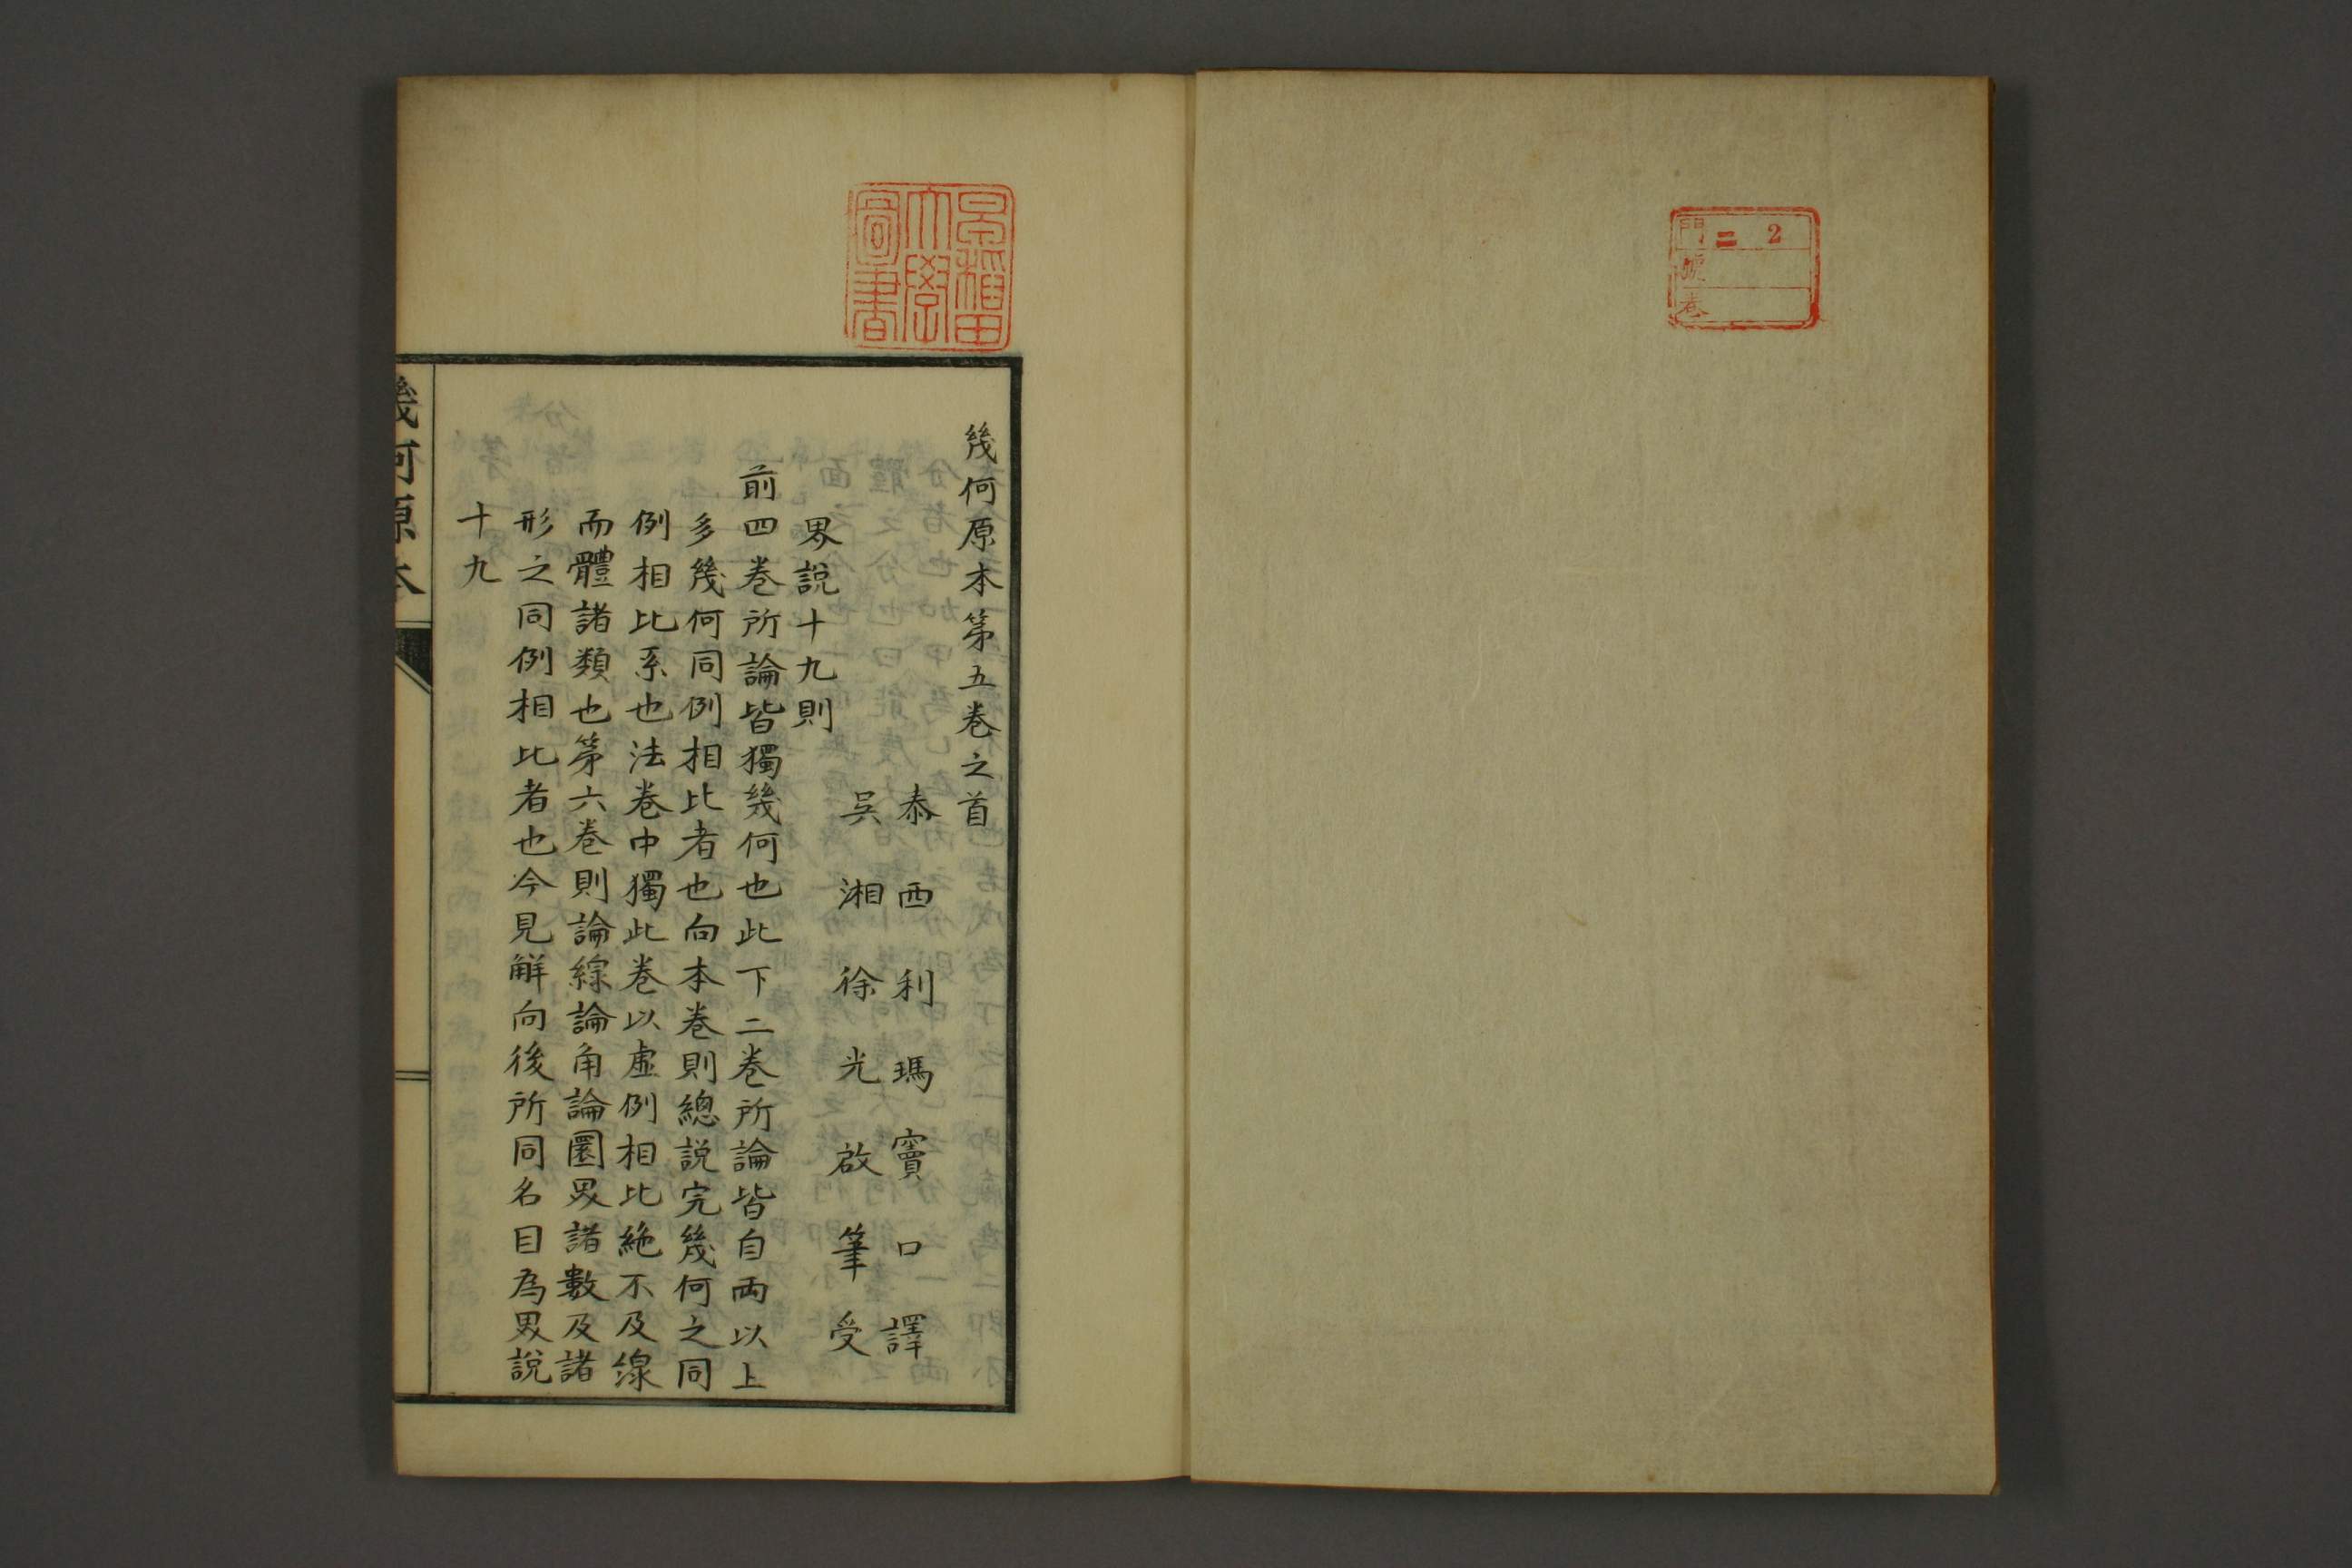 門 二 2
號
卷
早稲田
大學
圖書
幾何原本第五卷之首
泰西利瑪竇口譯
吳湘徐光啟筆受
界說十九則
前四卷所論皆獨幾何也此下二卷所論皆自兩以上
多幾何同例相比者也向本卷則總說完幾何之同
例相比系也法卷中獨此卷以虛例相比絶不及線
而體諸類也第六卷則論線論角論圜界諸數及諸
形之同例相比者也今見解向後所同名目為界說
十九
幾何原本